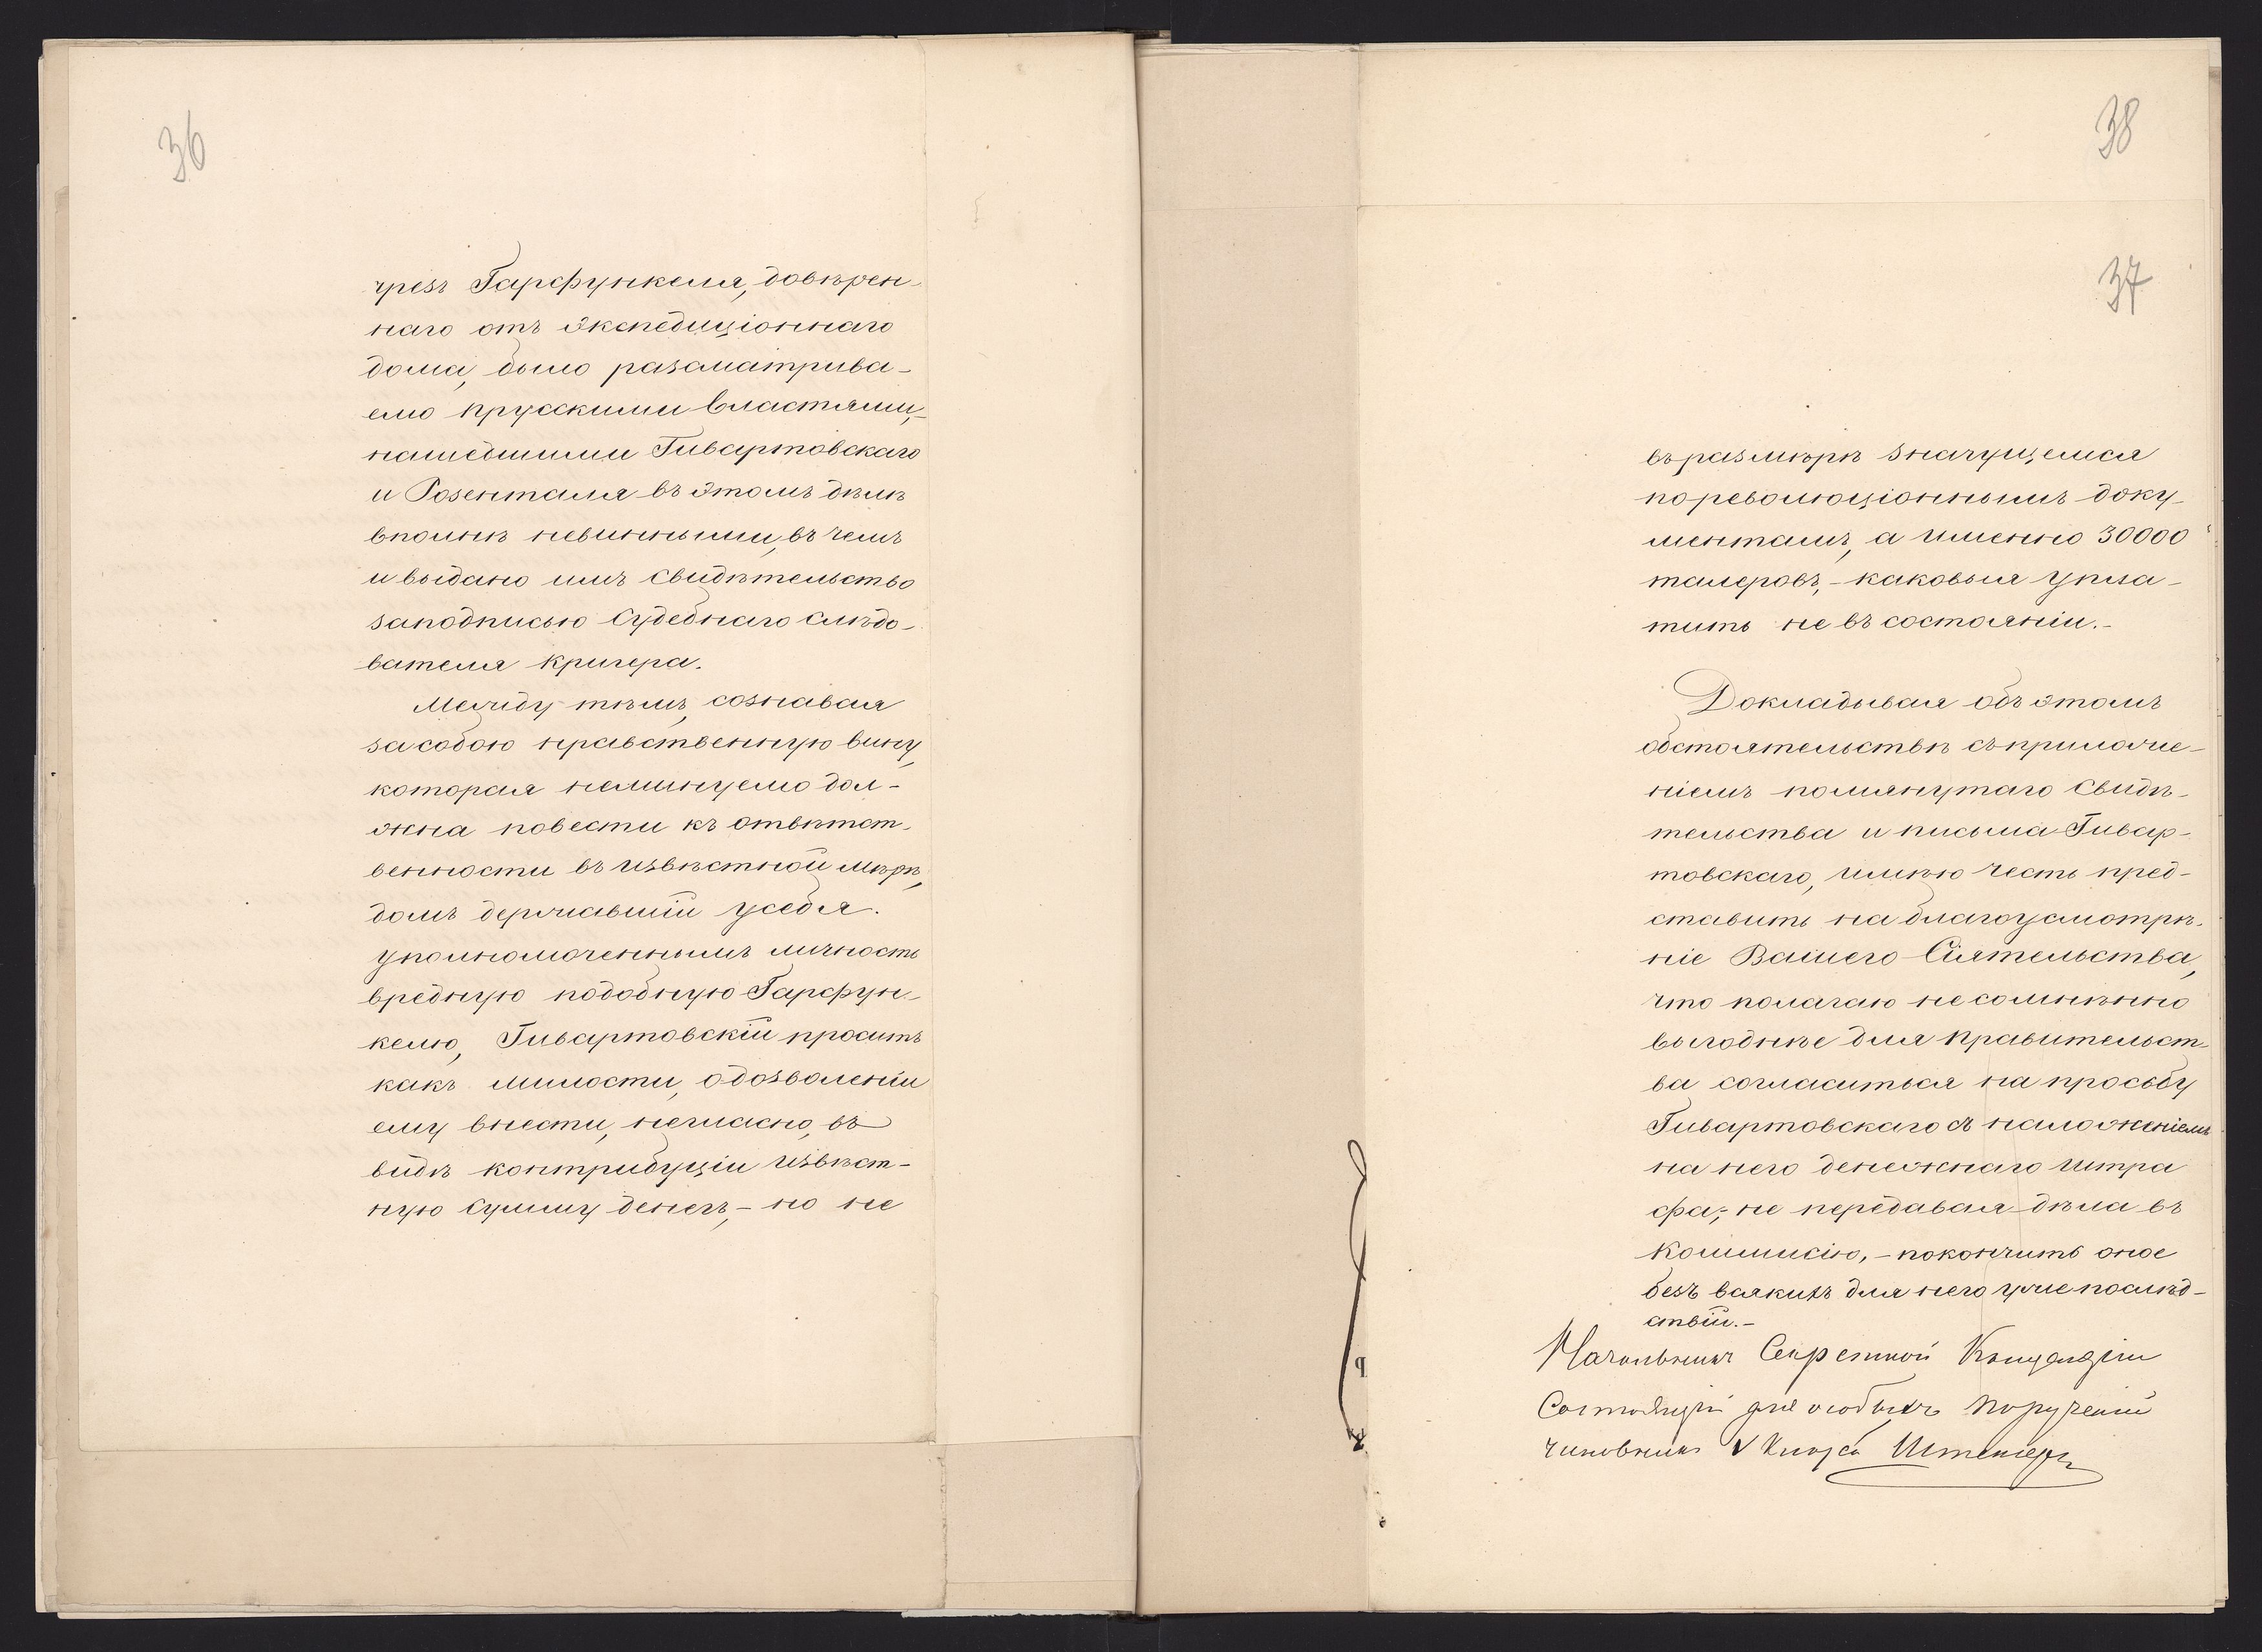 36
чрезъ Гарфункеля, довѣрен-
наго отъ экспедиціоннаго
дома, было разсматрива-
емо прусскими властями,-
нашедшими Гивартовскаго
и Розенталя въ этомъ дѣлѣ
вполнѣ невинными, въ чемъ
и выдано имъ свидѣтельство
за подписью Судебнаго слѣдо-
вателя Кригера.
Между тѣмъ, сознавая
за собою нравственную вину,
которая неминуемо дол-
жна повести къ отвѣтст-
венности въ извѣстной мѣрѣ,
домъ державшій у себя
уполномоченнымъ личность
вредную подобную Гарфун-
келю, Гивартовскій проситъ
какъ милости, о дозволеніи
ему внести, негласно, въ
видѣ контрибуціи извѣст-
ную сумму денегъ,- но не
38
37
въ размѣрѣ значущемся
по революціоннымъ доку-
ментамъ, а именно 30000
талеровъ,- каковыя упла-
тить не въ состояніи.-
Докладывая объ этомъ
обстоятельствѣ съ приложе-
ніемъ помянутаго свидѣ-
тельства и письма Гивар-
товскаго, имѣю честь пред-
ставить на благоусмотрѣ-
ніе Вашего Сіятельства,
что полагаю несомнѣнно
выгоднѣе для правительст-
ва согласиться на просьбу
Гивартовскаго съ наложеніемъ
на него денежнаго штра
фа;- не передавая дѣла въ
Коммисію,- покончить оное
безъ всякихъ для него уже послѣд-
ствій.-
Начальникъ Секретной Канцеляріи
Состоящій для особыхъ порученій
чиновникъ V класса